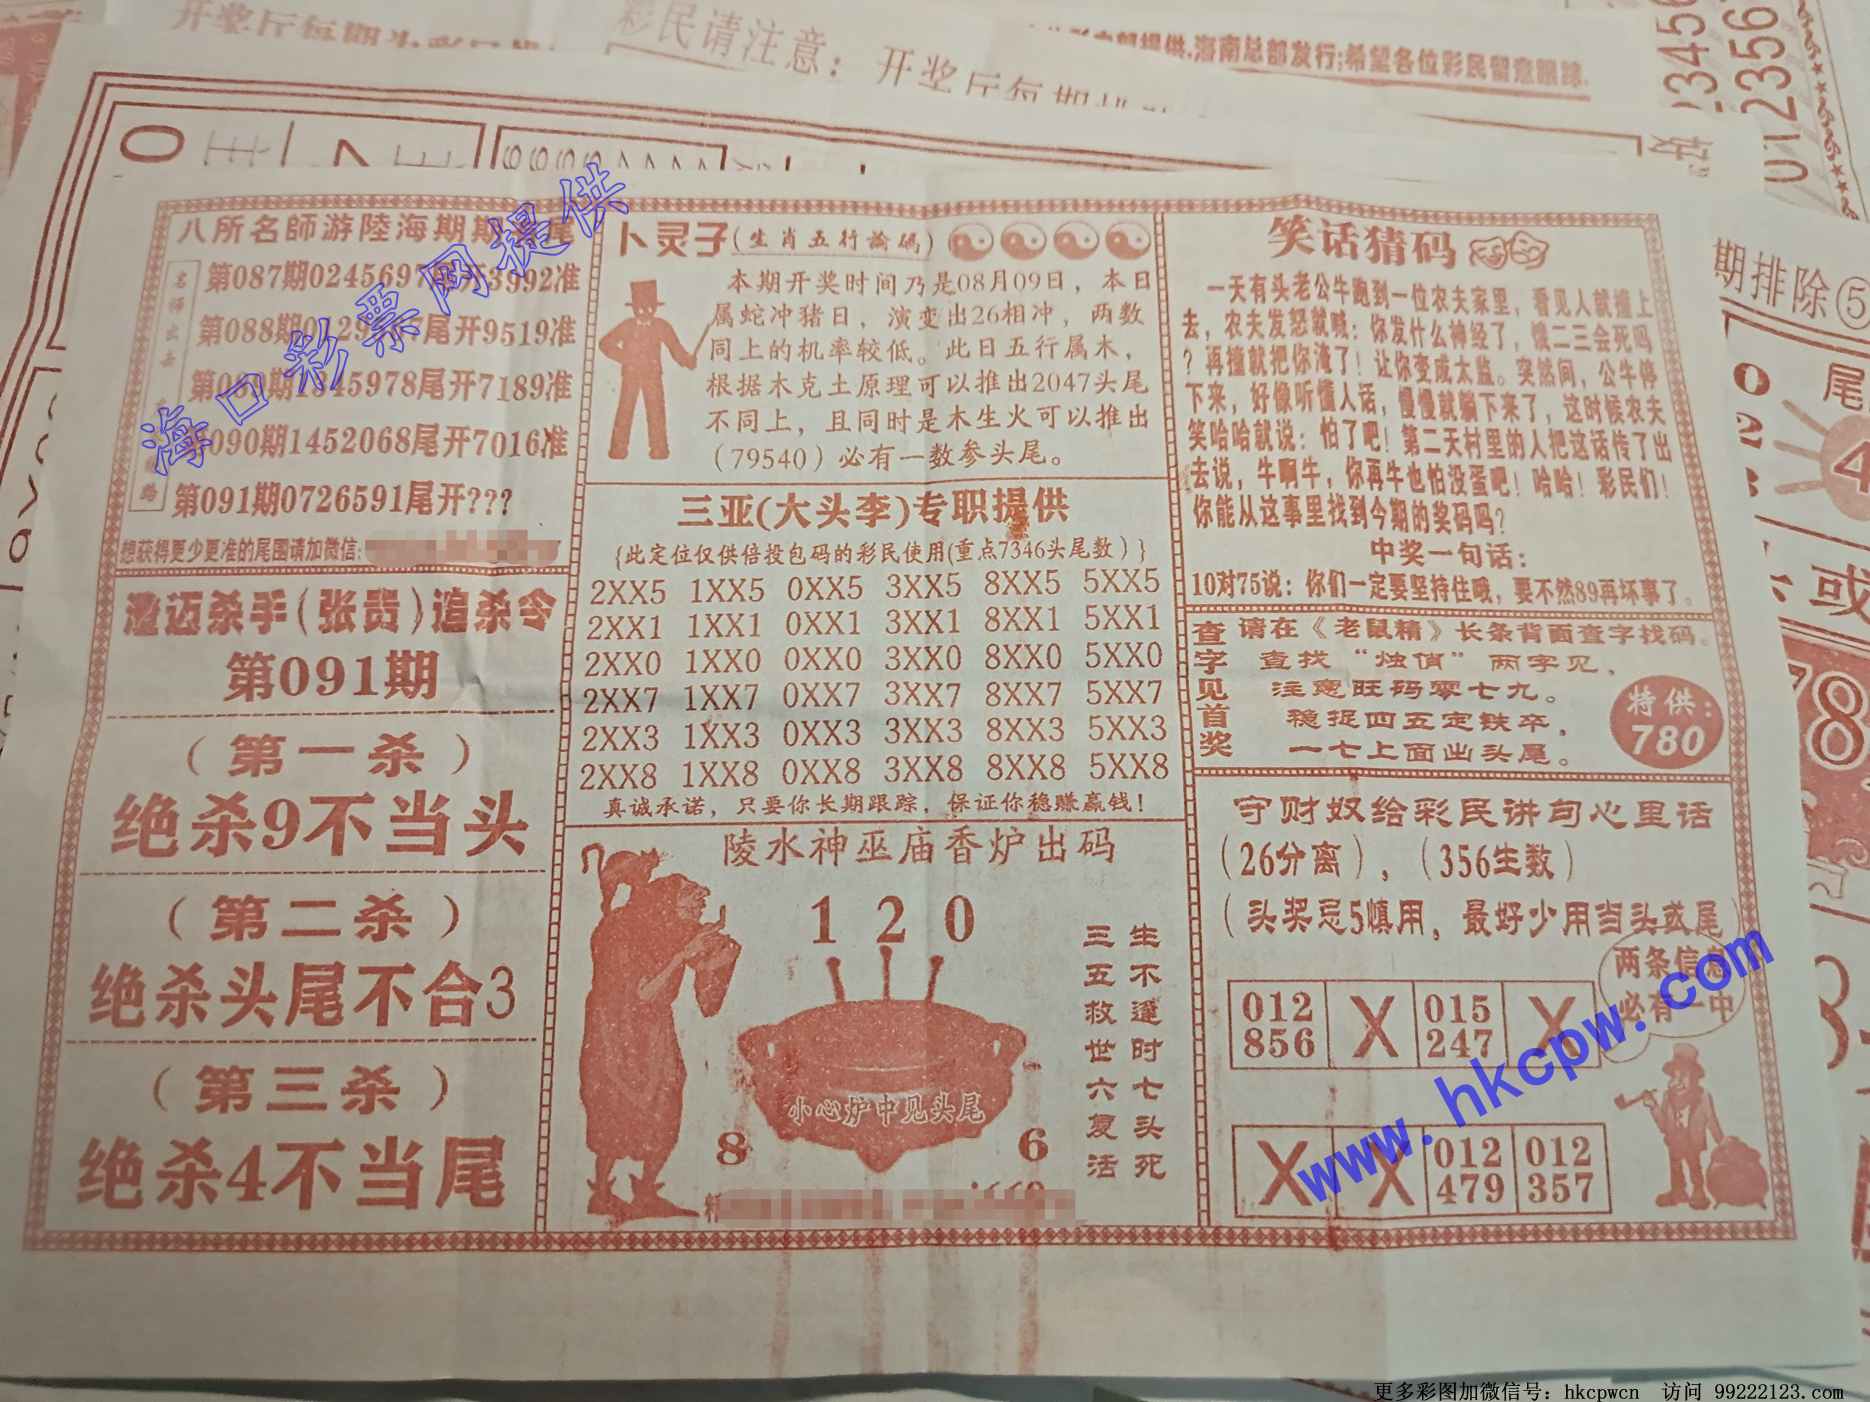 彩民请注意：开奖厅每期
提供,海南总部发行;希望各位彩民留意跟踪.
八所名師游陸海期期
名师出击
第087期0245697尾开3992准
第088期 尾开9519准
45978尾开7189准
090期1452068尾开7016准
第091期0726591尾开???
想获得更少更准的尾围请加微信:
澄迈杀手(张贵)追杀令
第091期
(第一杀)
绝杀9不当头
(第二杀)
绝杀头尾不合3
(第三杀)
绝杀4不当尾
卜灵子(生肖五行論码)
本期开奖时间乃是08月09日，本日
属蛇冲猪日，演变出26相冲，两数
同上的机率较低。此日五行属木，
根据木克土原理可以推出2047头尾
不同上，且同时是木生火可以推出
(79540)必有一数参头尾。
三亚(大头李)专职提供
{此定位仅供倍投包码的彩民使用(重点7346头尾数)}
2XX5 1XX5 0XX5 3XX5 8XX5 5XX5
2XX1 1XX1 0XX1 3XX1 8XX1 5XX1
2XX0 1XX0 0XX0 3XX0 8XX0 5XX0
2XX7 1XX7 0XX7 3XX7 8XX7 5XX7
2XX3 1XX3 0XX3 3XX3 8XX3 5XX3
2XX8 1XX8 0XX8 3XX8 8XX8 5XX8
真诚承诺，只要你长期跟踪，保证你稳赚赢钱!
陵水神巫庙香炉出码
1 2 0
小心炉中见头尾
8 6
生不逢时七头死
三五救世六复活
笑话猜码
一天有头老公牛跑到一位农夫家里，看见人就撞上
去，农夫发怒就喊：你发什么神经了，饿二三会死吗
？再撞就把你淹了！让你变成太监。突然间，公牛停
下来，好像听懂人话，慢慢就躺下来了，这时候农夫
笑哈哈就说：怕了吧！第二天村里的人把这话传了出
去说，牛啊牛，你再牛也怕没蛋吧！哈哈！彩民们！
你能从这事里找到今期的奖码吗？
中奖一句话：
10对75说：你们一定要坚持住哦，要不然89再坏事了。
查字见首奖
请在《老鼠精》长条背面查字找码。
查找“烛俏”两字见，
注意旺码零七九。
稳捉四五定铁卒，
一七上面出头尾。
特供：
780
守财奴给彩民讲句心里话
(26分离)，(356生数)
(头奖忌5慎用，最好少用当头或尾)
两条信息
必有一中
012 X 015 X
856 247
X X 012 012
479 357
期排除⑤
尾
或
海口彩票网提供
www.hkcpw.com
更多彩图加微信号：hkcpwcn 访问 99222123.com